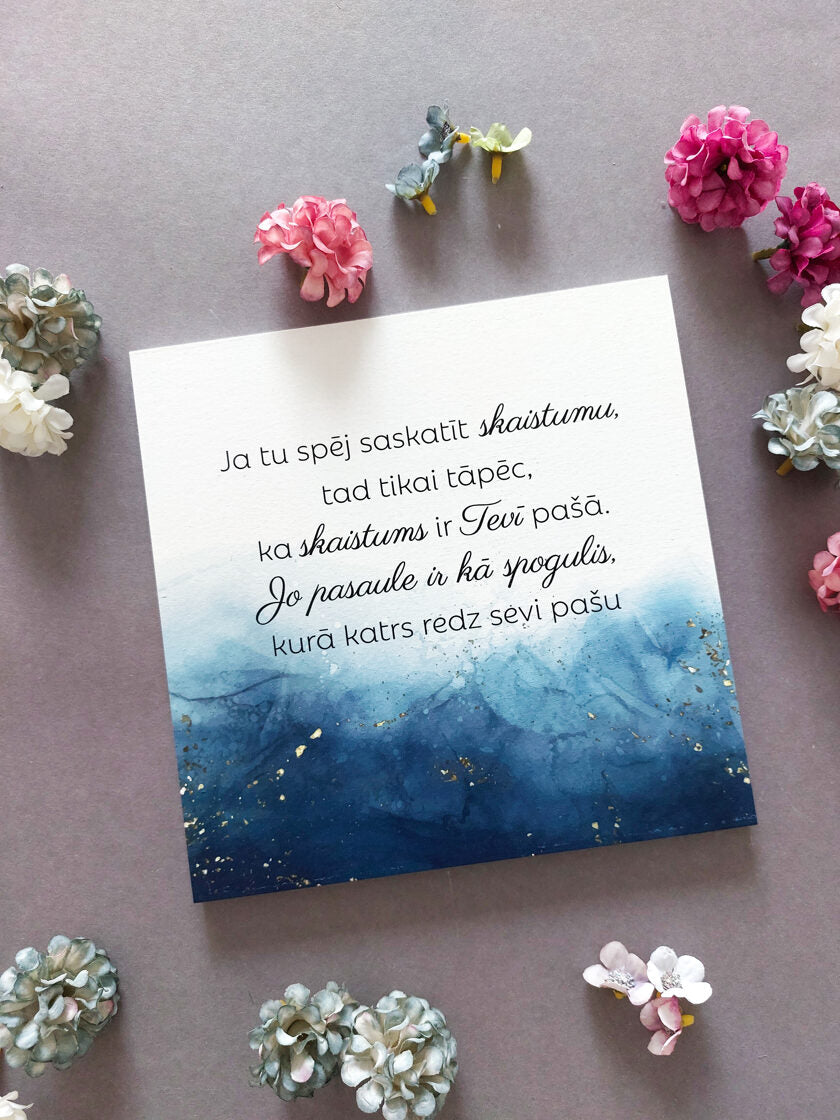 Ja tu spēj saskatīt skaistumu,
tad tikai tāpēc,
ka skaistums ir Tevī pašā.
Jo pasaule ir kā spogulis,
kurā katrs redz sevi pašu